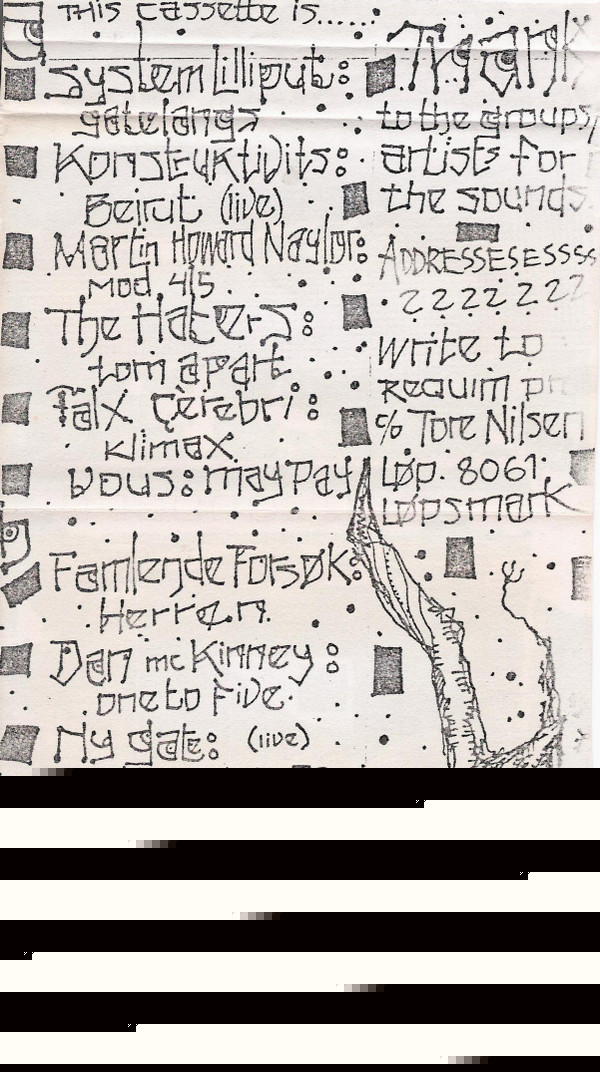 THIS cassette is......
System Lilliput:
gatelangs
Konstruktivits:
Beirut (live)
Martin Howard Naylor:
Mod 4/5
The Haters:
torn apart
Falx çèrebri:
Klimax
Vous: may pay
Famlende Forsøk:
Herren
Dan mc Kinney:
one to five
Ny gate: (live)
Thank
to the groups,
artists for
the sounds
ADDRESSESESSSS
? ? ? ? ? ? ?
write to
requim pr
c/o Tore Nilsen
Løp. 8061.
Løpsmark